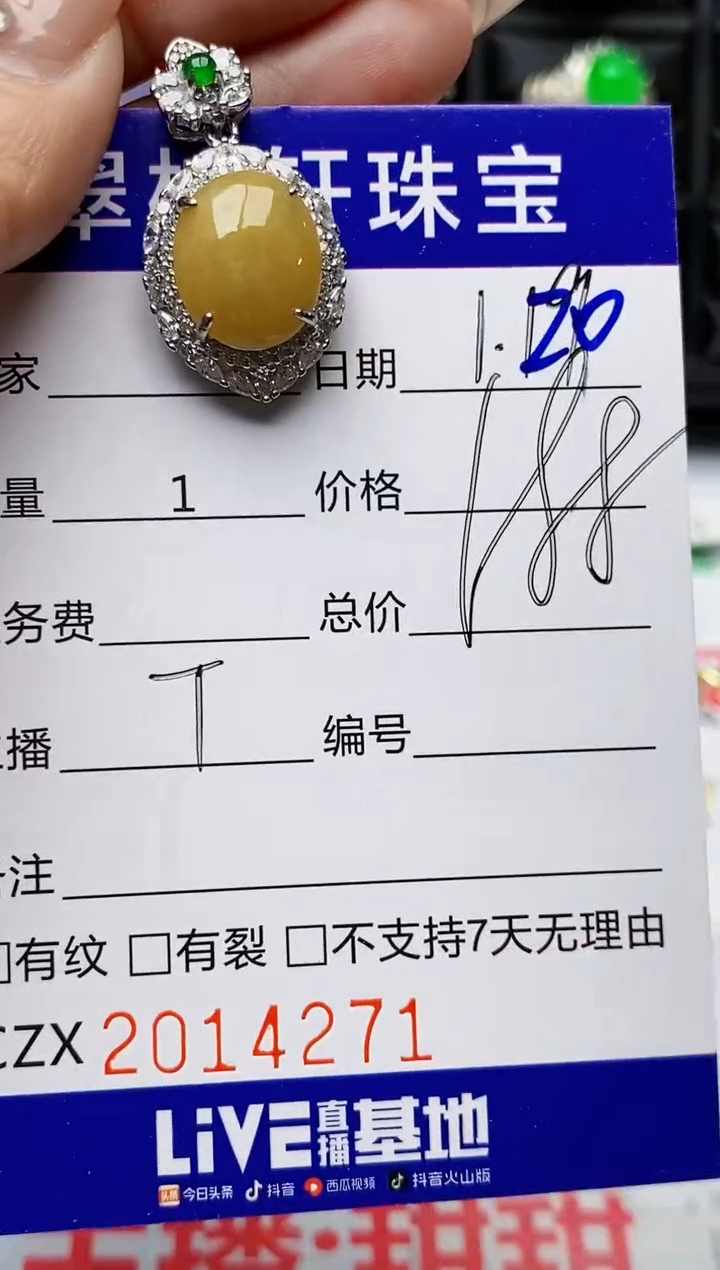 翠 轩珠宝
家 日期 1.20
量 1 价格 188
务费 总价
播 T 编号
注
□有纹 □有裂 □不支持7天无理由
CZX 2014271
LiVE直播基地
今日头条 抖音 西瓜视频 抖音火山版